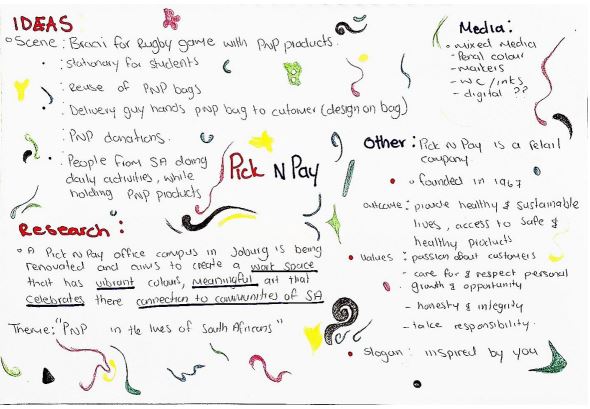 IDEAS
Scene : Braai for Rugby game with PNP products.
: stationary for students
: reuse of PNP bags
: Delivery guy hands pnp bag to cutomer (design on bag)
: PNP donations.
: People from SA doing
daily activities, while
holding PNP products
Pick N Pay
Research :
A Pick n Pay office campus in Joburg is being
renovated and aims to create a work space
that has vibrant colours, meaningful art that
celebrates there connection to communities of SA
Theme: "PNP in the lives of South Africans"
Media :
mixed media
- Pencil colour
- markers
- wc/inks
- digital ??
Other : Pick n Pay is a retail
company.
founded in 1967
outcome : provide healthy & sustainable
lives, access to safe &
healthy products
values : passion about customers
- care for & respect personal
growth & opportunity
- honesty & integrity
- take responsibility.
slogan : inspired by you